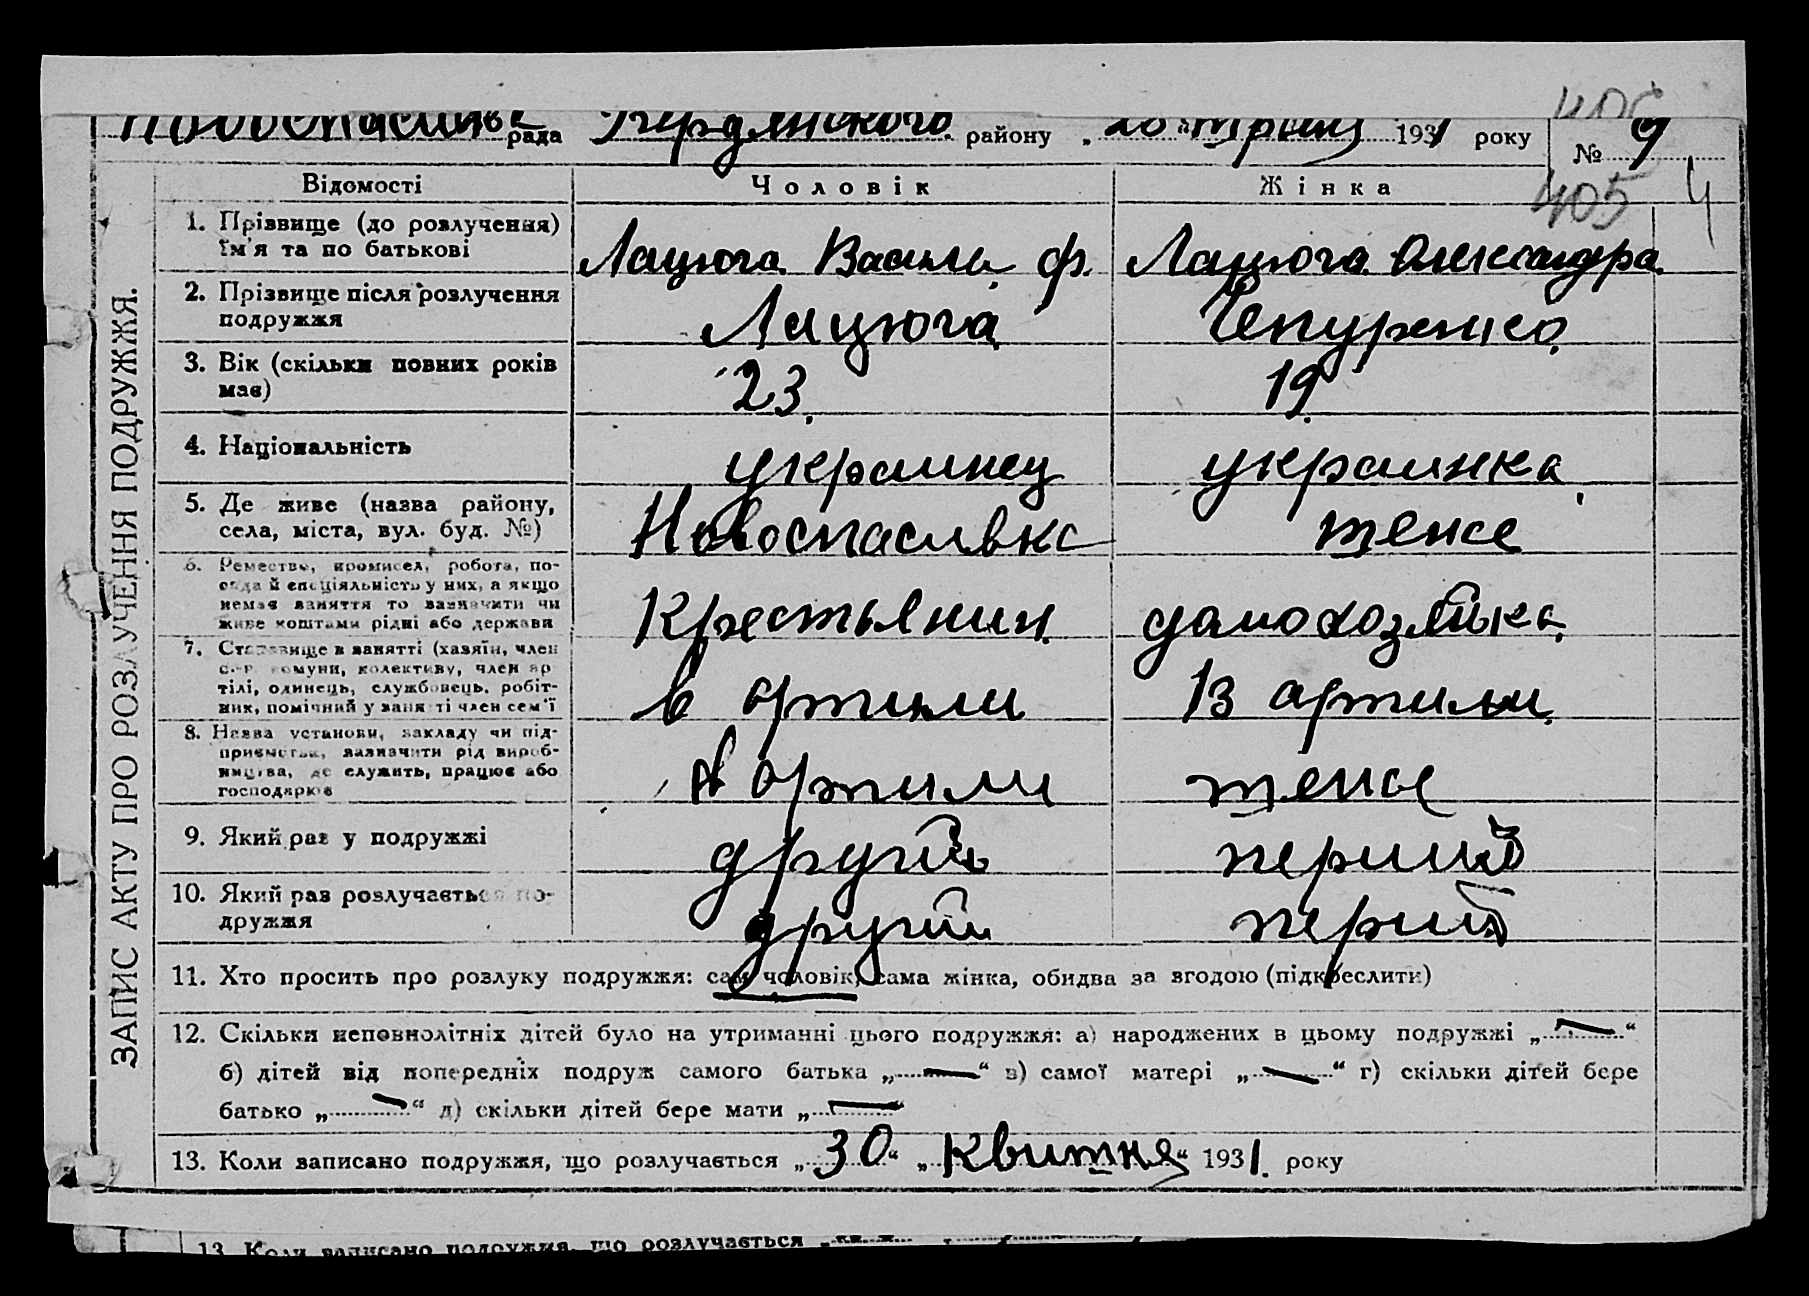 рада Бердянского району 1931 року
№ 9
405
4
Відомості Чоловік Жінка
1. Прізвище (до розлучення) ім'я та по батькові
Лацюга Василь ф. Лацюга Олександра
2. Прізвище після розлучення подружжя
Лацюга Чепуренко
3. Вік (скільки повних років має)
23 19
4. Національність
украинец украинка
5. Де живе (назва району, села, міста, вул. буд. №)
Новоспасивка теже
6. Ремество, промисел, робота, посада й спеціяльність у них, а якщо немає заняття то зазначити чи живе коштами рідні або держави
Крестьянин домохозяйка
7. Становище в занятті (хазяїн, член с.-г. комуни, колективу, член артілі, одинець, службовець, робітник, помічний у занятті член сем'ї
в артили в артили
8. Назва установи, закладу чи підприємства, зазначити рід виробництва, де служить, працює або господарює
в артили теже
9. Який раз у подружжі
другий перший
10. Який раз розлучається подружжя
другий перший
11. Хто просить про розлуку подружжя: сам чоловік, сама жінка, обидва за згодою (підкреслити)
12. Скільки неповнолітніх дітей було на утриманні цього подружжя: а) народжених в цьому подружжі „—“
б) дітей від попередніх подруж самого батька „—“ в) самої матері „—“ г) скільки дітей бере
батько „—“ д) скільки дітей бере мати „—“
13. Коли записано подружжя, що розлучається „30“ „Квитня“ 1931 року
ЗАПИС АКТУ ПРО РОЗЛУЧЕННЯ ПОДРУЖЖЯ.
13. Коли записано подружжя, що розлучається